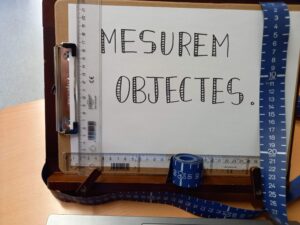 MESUREM
OBJECTES.